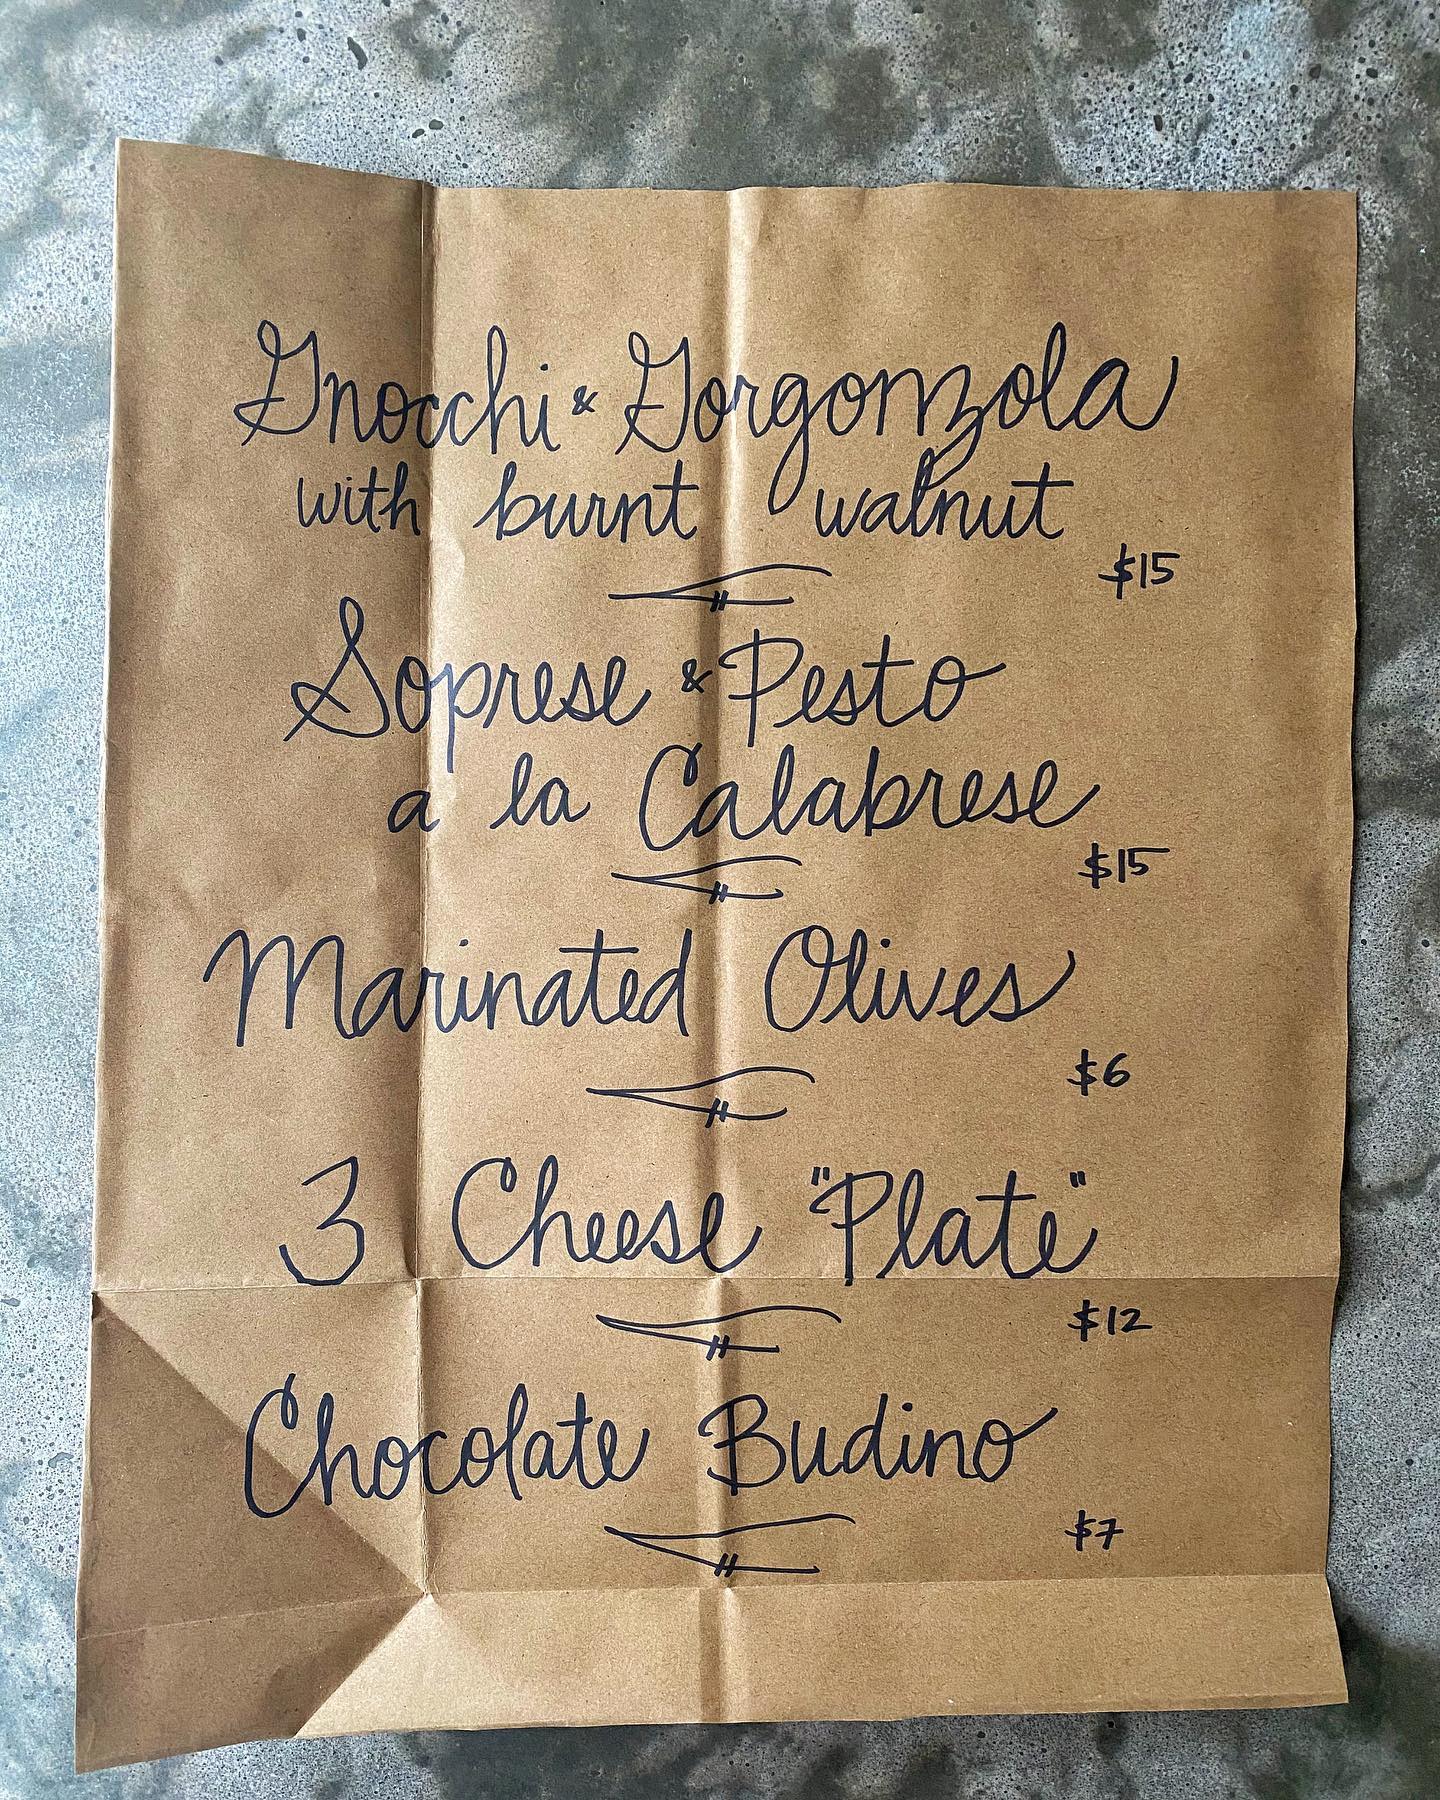 Gnocchi & Gorgonzola
with burnt walnut
$15
Soprese & Pesto
a la Calabrese
$15
Marinated Olives
$6
3 Cheese "Plate"
$12
Chocolate Budino
$7